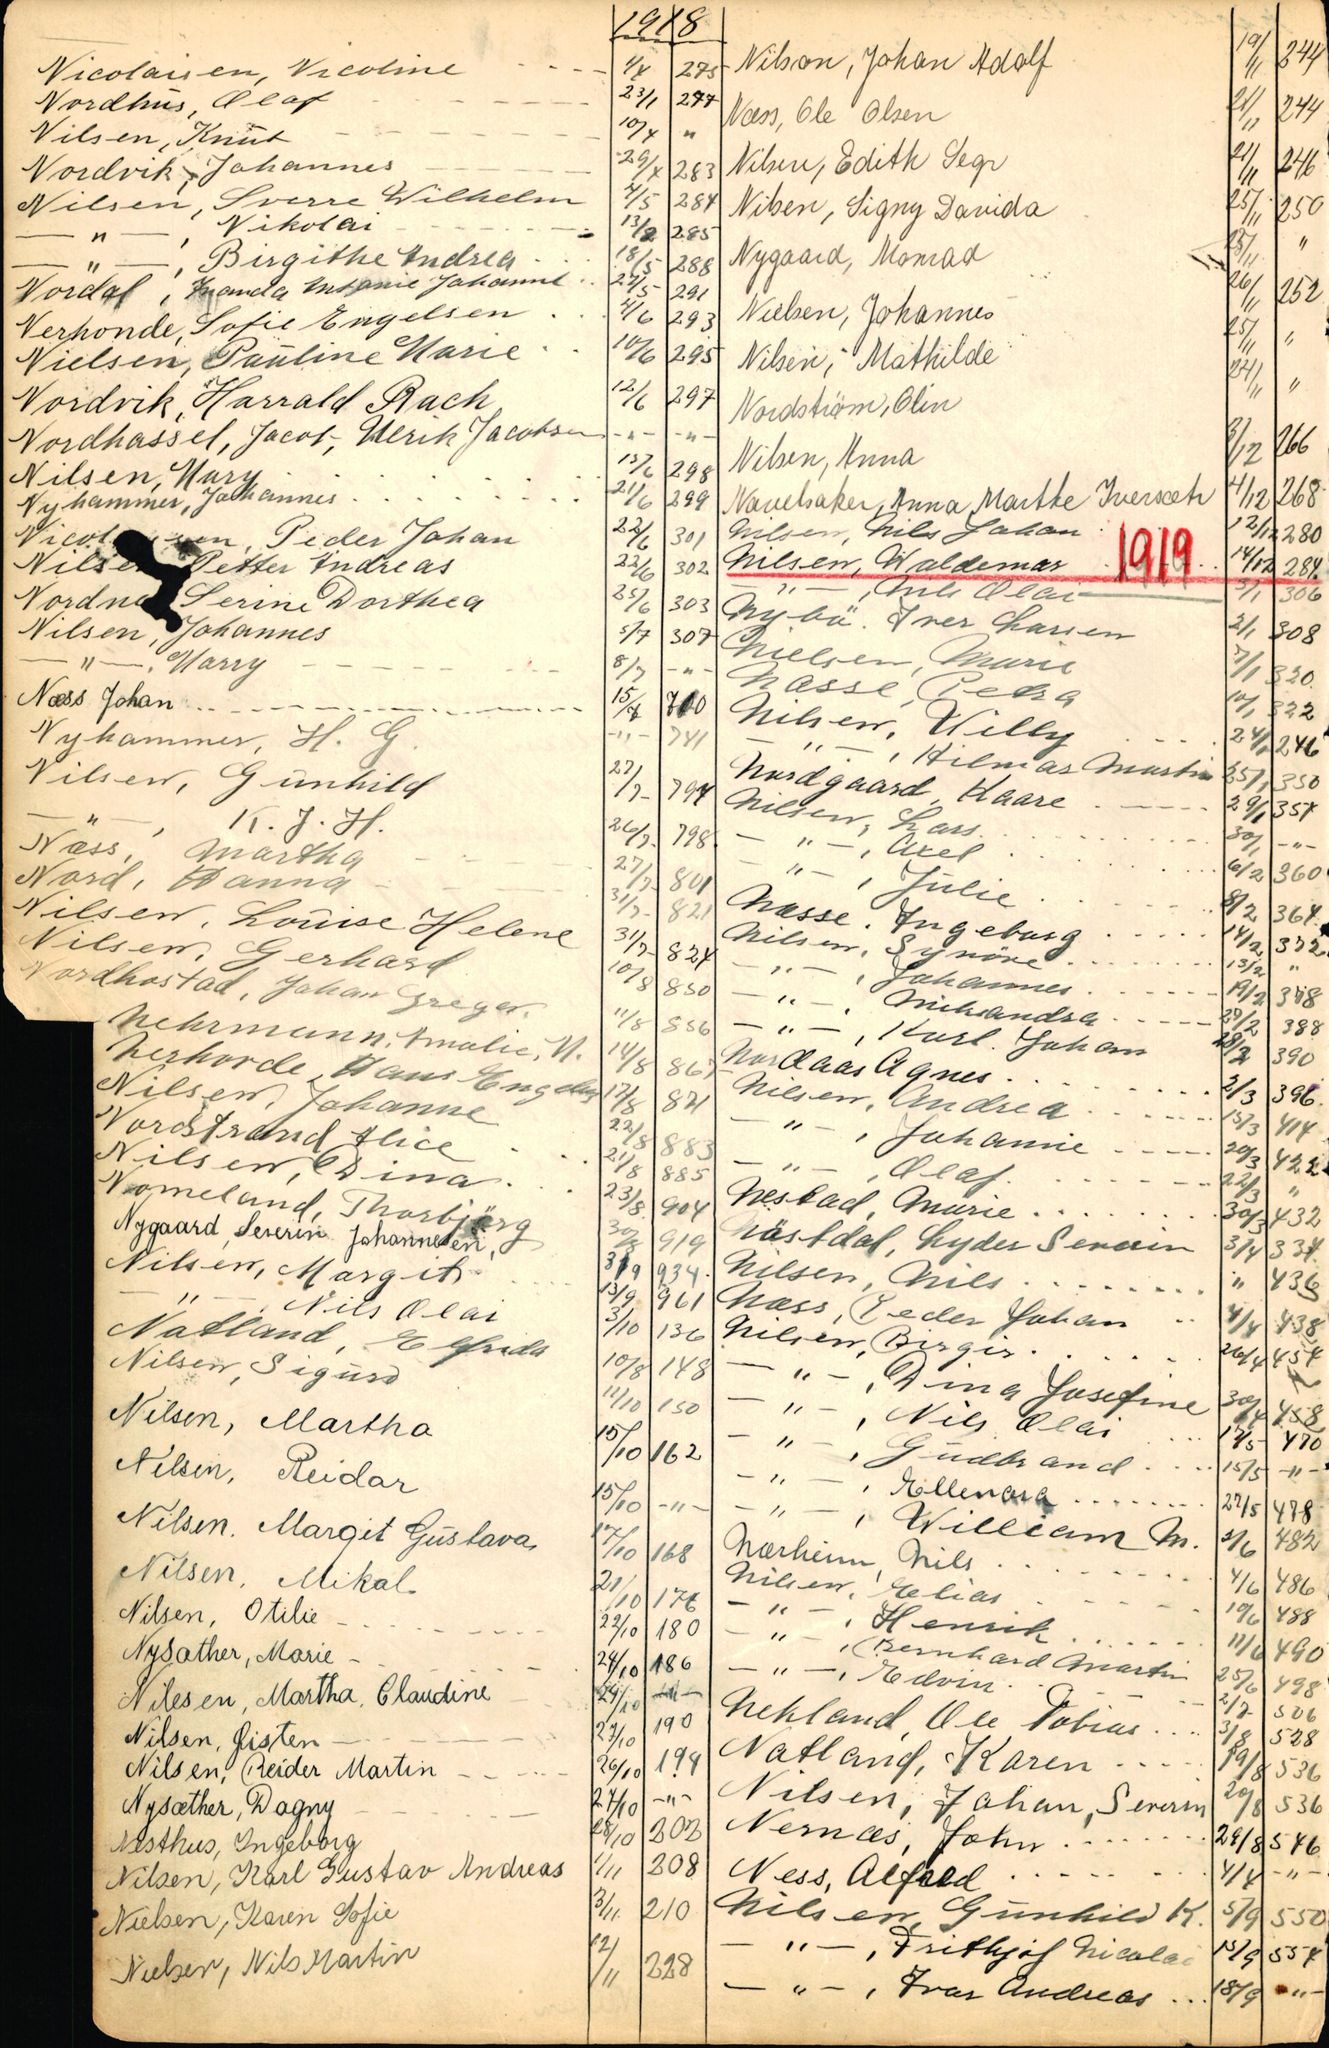 1918
Nicolaisen, Nicoline 4/4 275
Nordhus, Olaf 23/1 277
Nilsen, Knut 10/4 "
Nordvik, Johannes 29/4 283
Nilsen, Sverre Wilhelm 4/5 284
— " —, Nikolai 13/2 285
— " —, Birgithe Andrea 18/5 288
Nordal, Johanne 291
Nerhonde, Sofie Engelsen 4/6 293
Nielsen, Pauline Marie 10/6 295
Nordvik, Harrald Rach 12/6 297
Nordhassel, Jacob, Ulrik Jacobsen -"- -"-
Nilsen, Mary 298
Nyhammer, Johannes 21/6 299
Peder Johan 22/6 301
Nilsen Petter Andreas 22/6 302
Serine Dorthea 25/6 303
Nilsen, Johannes 5/7 307
— " —, Harry 8/7 -"-
Næss Johan 15/7
Nyhammer, H. G. -"- 741
Nilsen, Gunhild 27/7 794
— " —, K. J. H. 26/7 798
Næss, Martha 27/7 801
Nord, Hanna 31/7 821
Nilsen, Louise Helene 31/7 824
Nilsen, Gerhard 10/8 850
Nordhostad, Johan Greger. 11/8 856
Nehrmann, Amalie, N. 14/8
Nerhorde, Hans 17/8 871
Nilsen, Johanne 22/8 883
Nordstrand Alice 21/8 885
Nilsen, Dina 23/8 904
Nomeland, Thorbjørg 30/8 919
Nygaard, Severin Johannesen, 934
Nilsen, Margit 13/9 961
— " —, Nils Olai 3/10 136
Natland, Elfrida 10/8 148
Nilsen, Sigurd 11/10 150
Nilsen, Martha 15/10 162
Nilsen, Reidar 15/10 -"-
Nilsen. Margit Gustava, 17/10 168
Nilsen, Mikal 21/10 176
Nilsen, Otilie 22/10 180
Nysæther, Marie 24/10 186
Nilesen, Martha, Claudine 24/10 -"-
Nilsen, Gisten 27/10 190
Nilsen, Reider Martin 26/10 194
Nysæther, Dagny 27/10 -"-
Nesthus, Ingeborg 28/10 202
Nilsen, Karl Gustav Andreas 1/11 208
Nielsen, Karen Sofie 3/11 210
Nielsen, Nils Martin 12/11 228
Nilson, Johan Adolf 19/11 244
Næss, Ole Olsen 21/11 244
Nilsen, Edith Segr 21/11 246
Nilsen, Signy Davida 25/11 250
Nygaard, Monrad 25/11 "
Nielsen, Johannes 26/11 252
Nilsen, Mathilde 25/11 "
Nordstrøm, Olin 24/11 "
Nilsen, Anna 3/12 266
Navelsaker, Anna Marthe Iversæth 4/12 268
Nilsen, Nils Johan 12/12 280
Nilsen, Waldemar 14/12 284
1919
— " —, Nils Olai 3/1 306
Nybø. Iver Larsen 2/1 308
Nielsen, Marie 7/1 320
Næsse, Petra 10/1 322
Nilsen, Willy 24/1 246
— " —, Hilmar Martin 25/1 350
Nordgaard, Kaare 29/1 354
Nilsen, Lars 30/1 -"-
— " —, Axel 6/2 360
— " —, Julie 8/2 364
Næsse. Ingeborg 14/2 372
Nilsen, Synøve 13/2 "
— " —, Johannes 19/2 378
— " —, 27/2 388
— " —, Karl Johan 28/2 390
Nordaas Agnes 2/3 396
Nilsen, Andrea 15/3 414
— " —, Johanne 20/3 422
— " —, Olaf 22/3 "
Nestad, Marie 30/3 432
Næstdal, Lyder Severin 3/4 334
Nilsen, Nils " 436
Næss, Peder Johan 4/4 438
Nilsen, Birgir 26/4 454
— " —, Dina Josefine 30/4 458
— " —, Nils Olai 12/5 470
— " —, Gudbrand 15/5 -"-
— " —, Ellenora 27/5 478
— " —, William M. 3/6 482
Nærheim, Nils 4/6 486
Nilsen, Elias 10/6 488
— " —, Henrik 11/6 490
— " —, Bernhard Martin 25/6 498
— " —, Edvin 2/7 506
Nekland, Ole Tobias 3/8 528
Natland, Karen 19/8 536
Nilsen, Johan, Severin 20/8 536
Nernæs, John 29/8 546
Ness, Alfred 4/4 -"-
Nilsen, Gunhild K. 5/9 550
— " —, Frithjof Nicolai 15/9 554
— " —, Ivar Andreas 18/9 -"-